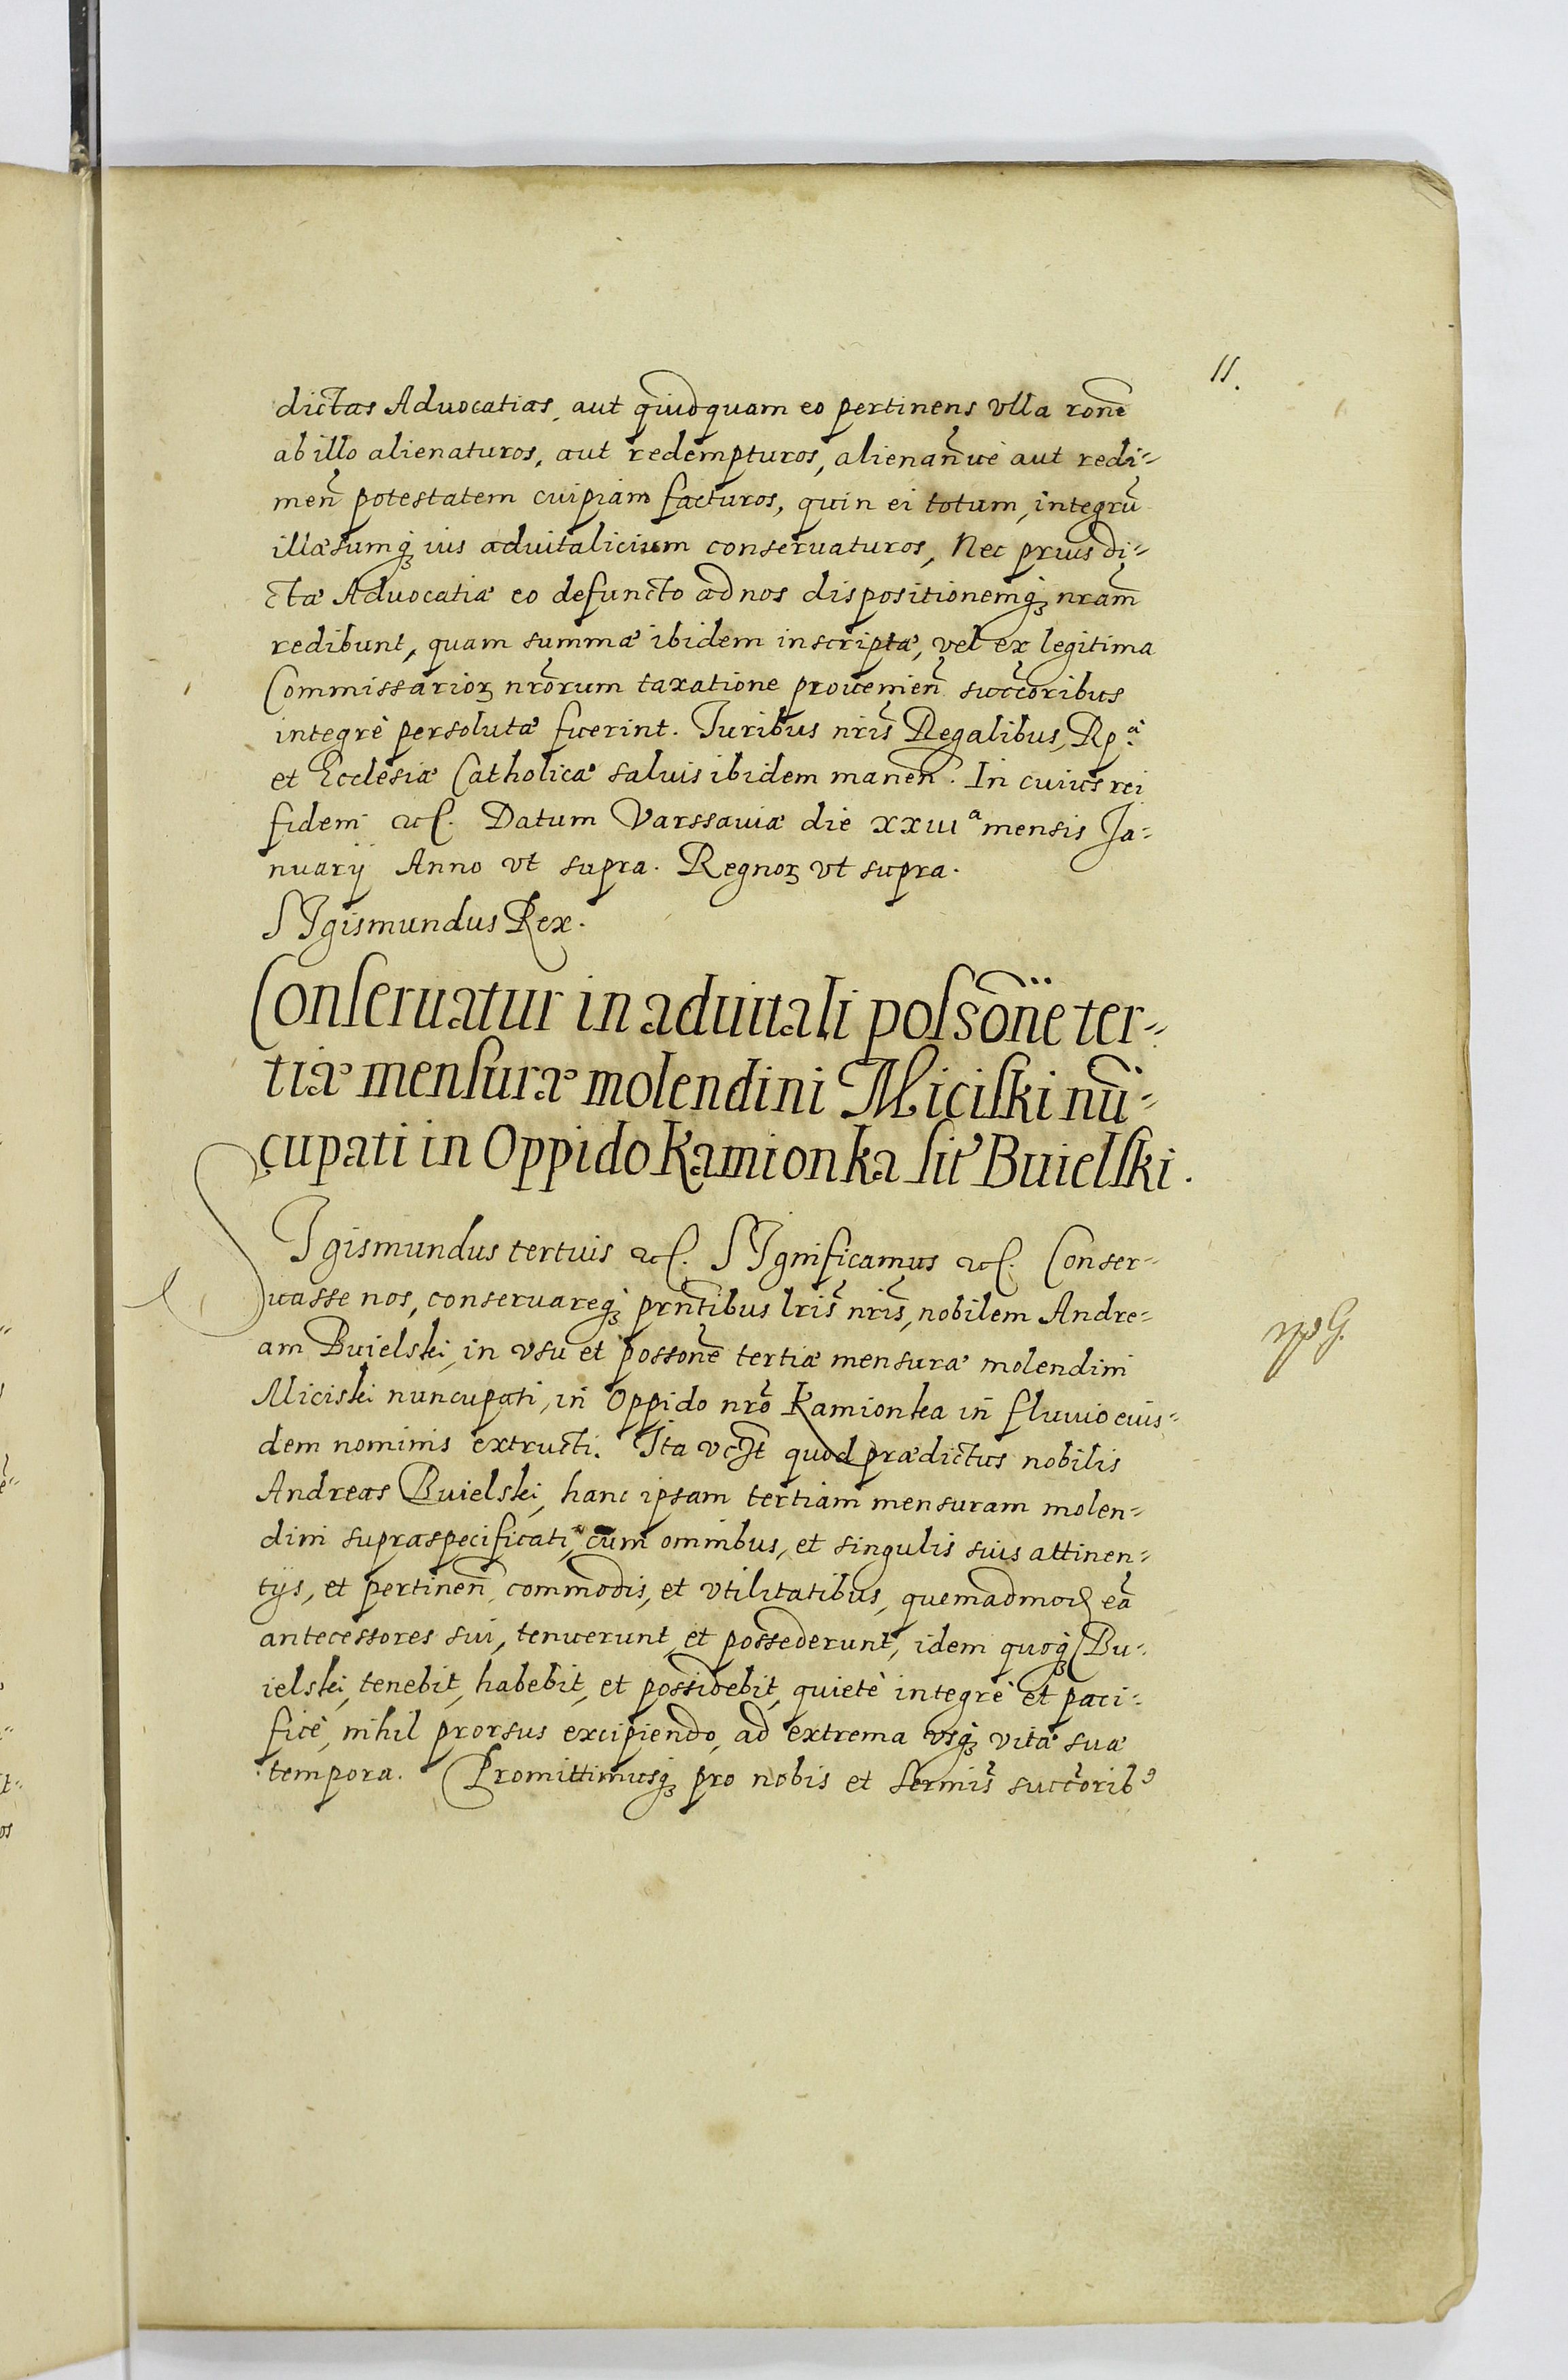 11.
dictas Advocatias, aut quidquam eo pertinens vlla rõne
ab illo alienaturos, aut redempturos, alienan̄ue aut redi-
men̄ potestatem cuipiam facturos, quin ei totum, integrũ
illæsumq́ ius aduitalicium conseruaturos, Nec prius di-
ctæ Aduocatiæ eo defuncto ad nos dispositionemq́ nrãm
redibunt, quam summæ ibidem inscriptæ, vel ex legitima
Commissarioꝝ nrõrum taxatione prouenien̄ succ̃oribus
integrè persolutæ fuerint. Iuribus nrĩs Regalibus, Rp.ᵃᵉ
et Ecclesiæ Catholicæ saluis ibidem manen̄. In cuius rei
fidem etc. Datum Varssauiæ die xxiii ᵃ mensis Ja-
nuarij Anno vt supra. Regnoꝝ vt supra.
SIgismundus Rex.
Conseruatur in aduitali possõne ter-
tiæ mensuræ molendini Miciski nũ-
cupati in Oppido Kamionka sit̃ Buielski.
SIgismundus tertius etc. SIgnificamus etc. Conser-
uasse nos, conseruareq́ prñtibus lrĩs nrĩs, nobilem Andre-
am Buielski, in vsu et possõne tertiæ mensuræ molendini
Miciski nuncupati, in Oppido nrõ Kamionka in fluuio eius-
dem nominis extructi. Ita vt quod prædictus nobilis
Andreas Buielski, hanc ipsam tertiam mensuram molen-
dini supraspecificati, cum omnibus, et singulis suis attinen-
tijs, et pertinen̄, commodis, et vtilitatibus, quemadmod eã
antecessores sui, tenuerunt, et possederunt, idem quoq́ Bu-
ielski, tenebit, habebit, et possidebit, quietè integrè et paci-
ficè, nihil prorsus excipiendo, ad extrema vsq́ vitæ suæ
tempora. Promittimusq́ pro nobis et Sermĩs succ̃orib9